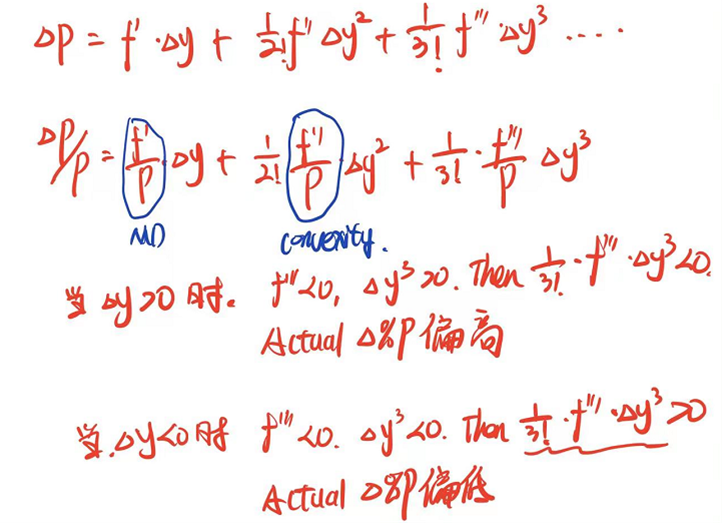 ΔP = f' · Δy + 1/2! f'' Δy² + 1/3! f''' · Δy³ ....
ΔP/P = f'/P Δy + 1/2! f''/P Δy² + 1/3! · f'''/P Δy³
MD convexity.
当 Δy>0 时. f'''<0, Δy³>0. Then 1/3! · f''' · Δy³<0.
Actual Δ%P 偏高
当.Δy<0时 f'''<0. Δy³<0. Then 1/3! · f''' · Δy³>0
Actual Δ%P 偏低